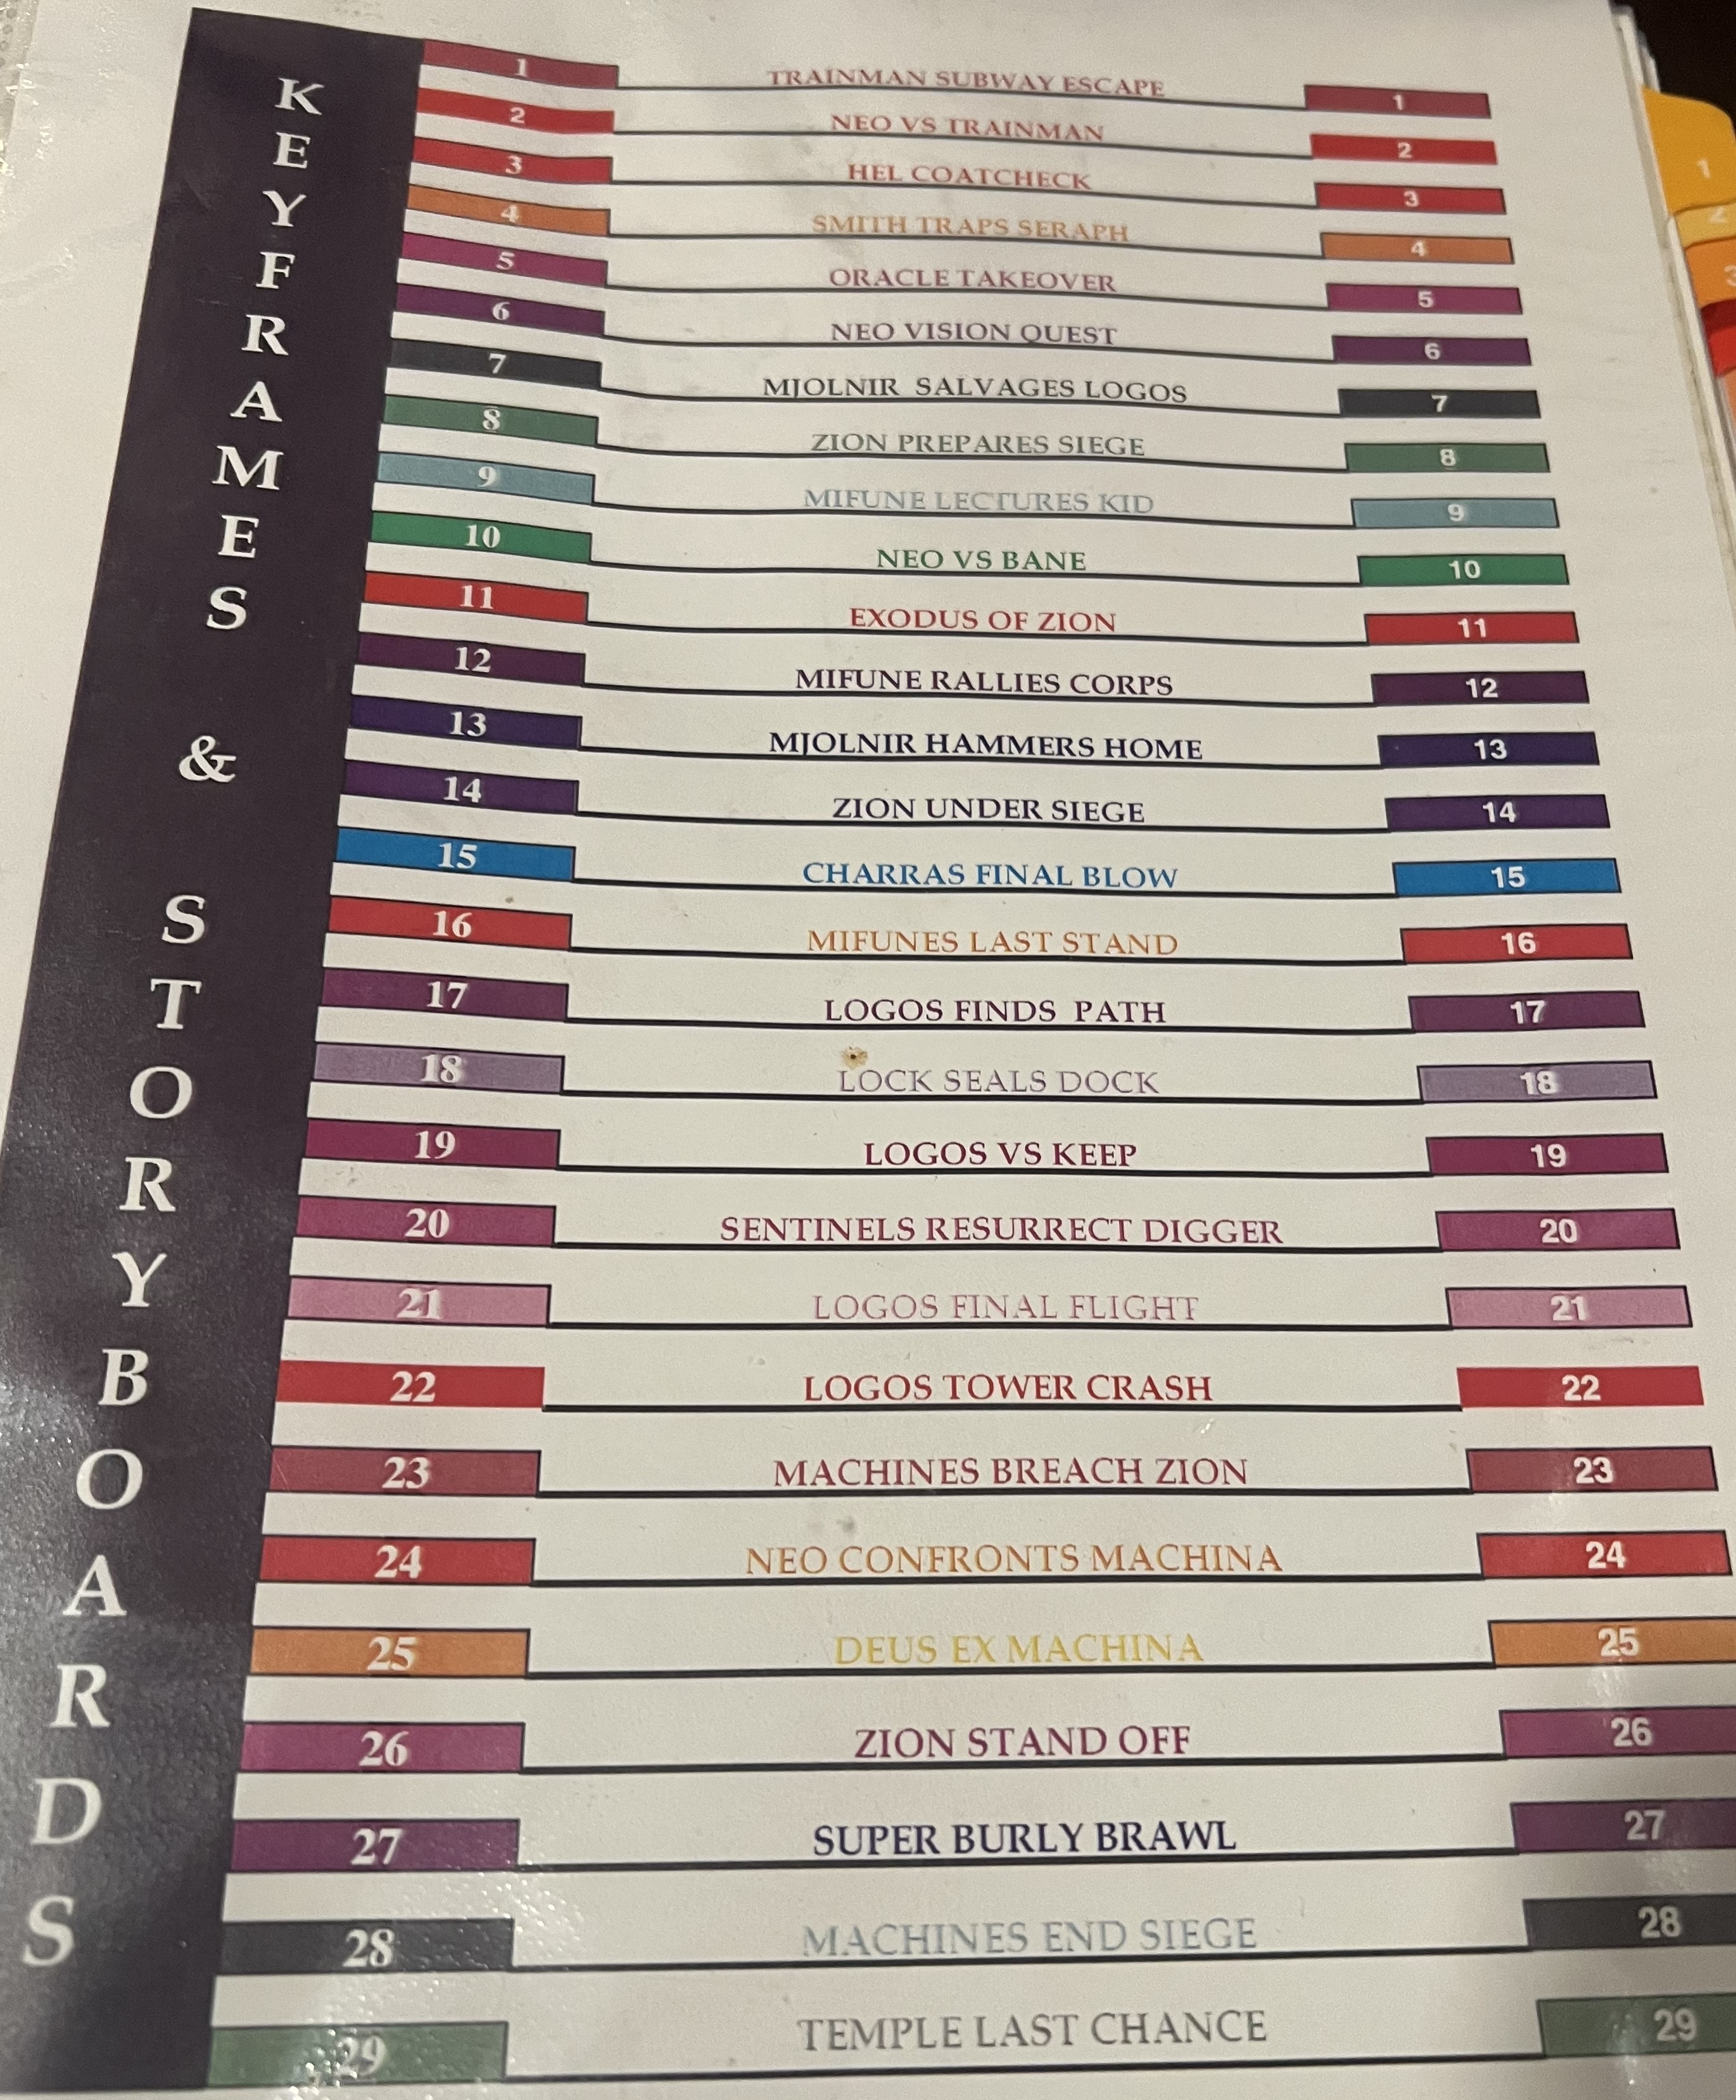 KEYFRAMES & STORYBOARDS
1 TRAINMAN SUBWAY ESCAPE 1
2 NEO VS TRAINMAN 2
3 HEL COATCHECK 3
4 SMITH TRAPS SERAPH 4
5 ORACLE TAKEOVER 5
6 NEO VISION QUEST 6
7 MJOLNIR SALVAGES LOGOS 7
8 ZION PREPARES SIEGE 8
9 MIFUNE LECTURES KID 9
10 NEO VS BANE 10
11 EXODUS OF ZION 11
12 MIFUNE RALLIES CORPS 12
13 MJOLNIR HAMMERS HOME 13
14 ZION UNDER SIEGE 14
15 CHARRAS FINAL BLOW 15
16 MIFUNES LAST STAND 16
17 LOGOS FINDS PATH 17
18 LOCK SEALS DOCK 18
19 LOGOS VS KEEP 19
20 SENTINELS RESURRECT DIGGER 20
21 LOGOS FINAL FLIGHT 21
22 LOGOS TOWER CRASH 22
23 MACHINES BREACH ZION 23
24 NEO CONFRONTS MACHINA 24
25 DEUS EX MACHINA 25
26 ZION STAND OFF 26
27 SUPER BURLY BRAWL 27
28 MACHINES END SIEGE 28
29 TEMPLE LAST CHANCE 29
1
2
3